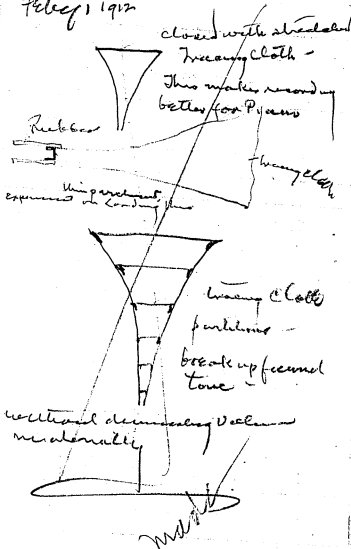 Feby 1 1912
closed with stretched
Tracing Cloth -
This makes recording
better for Piano
Rubber
tracing cloth
thin parchment
experiment on Loading this
tracing Cloth
partitions -
break up found
tone -
without diminishing Volume
materially